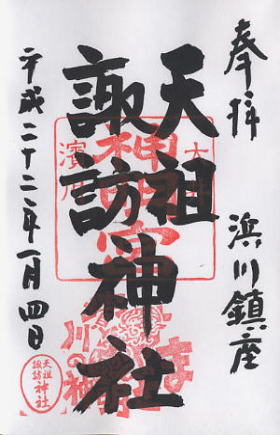 奉拝
浜川鎮座
天祖
諏訪神社
平成二十二年一月四日
濱川
川の神
天祖
諏訪
神社